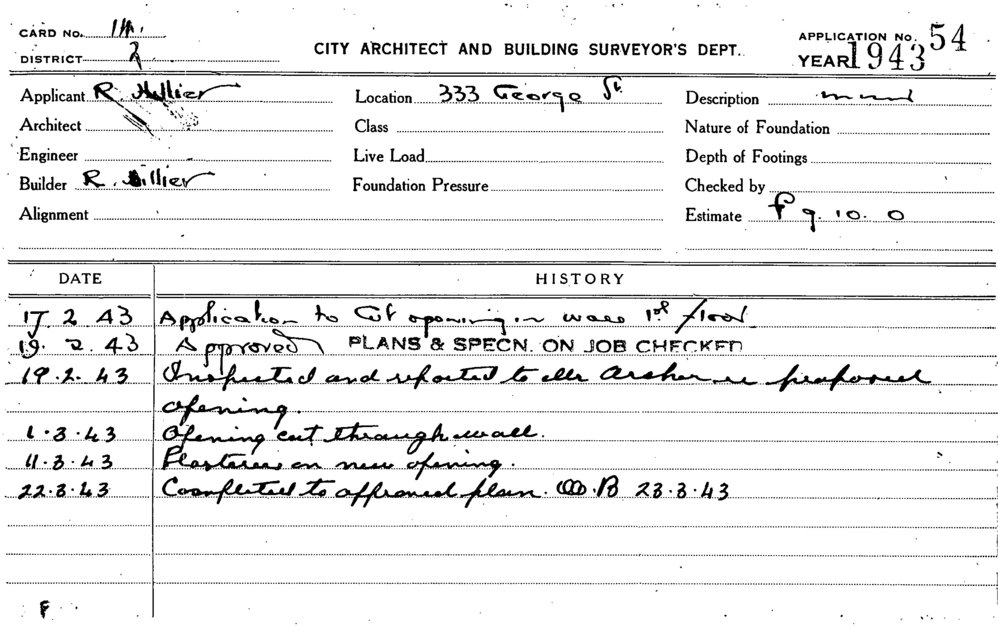 CARD No. 1
DISTRICT 2
CITY ARCHITECT AND BUILDING SURVEYOR'S DEPT.
APPLICATION No. 54
YEAR 1943
Applicant R. Hillier
Location 333 George St.
Description
Architect
Class
Nature of Foundation
Engineer
Live Load
Depth of Footings
Builder R. Hillier
Foundation Pressure
Checked by
Alignment
Estimate £ 9. 10. 0
DATE HISTORY
17 2 43 Application to Cut opening in wall 1st floor
19. 2. 43 Approved PLANS & SPECN. ON JOB CHECKED
19. 2. 43 Inspected and reported to Mr Archer re proposed
opening.
1. 3. 43 Opening cut through wall.
11. 3. 43 Plasterers on new opening.
22. 3. 43 Completed to approved plan. B 23. 3. 43
F